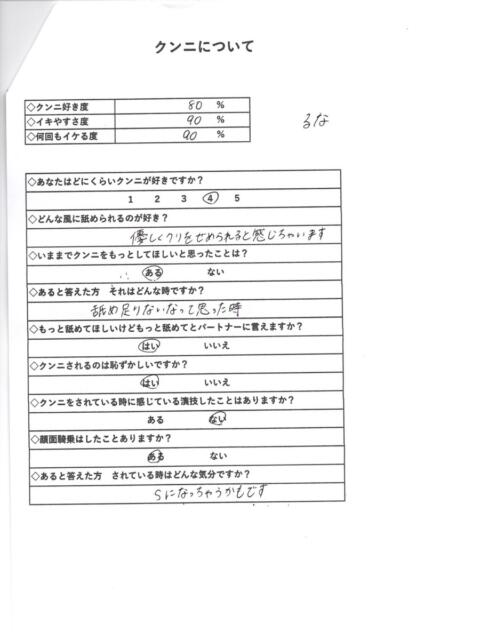 クンニについて
◇クンニ好き度 80 %
◇イキやすさ度 90 %
◇何回もイケる度 90 %
るな
◇あなたはどにくらいクンニが好きですか？
1 2 3 4 5
◇どんな風に舐められるのが好き？
優しくクリをせめられると感じちゃいます
◇いままでクンニをもっとしてほしいと思ったことは？
ある ない
◇あると答えた方 それはどんな時ですか？
舐め足りないなって思った時
◇もっと舐めてほしいけどもっと舐めてとパートナーに言えますか？
はい いいえ
◇クンニされるのは恥ずかしいですか？
はい いいえ
◇クンニをされている時に感じている演技したことはありますか？
ある ない
◇顔面騎乗はしたことありますか？
ある ない
◇あると答えた方 されている時はどんな気分ですか？
Sになっちゃうかもです